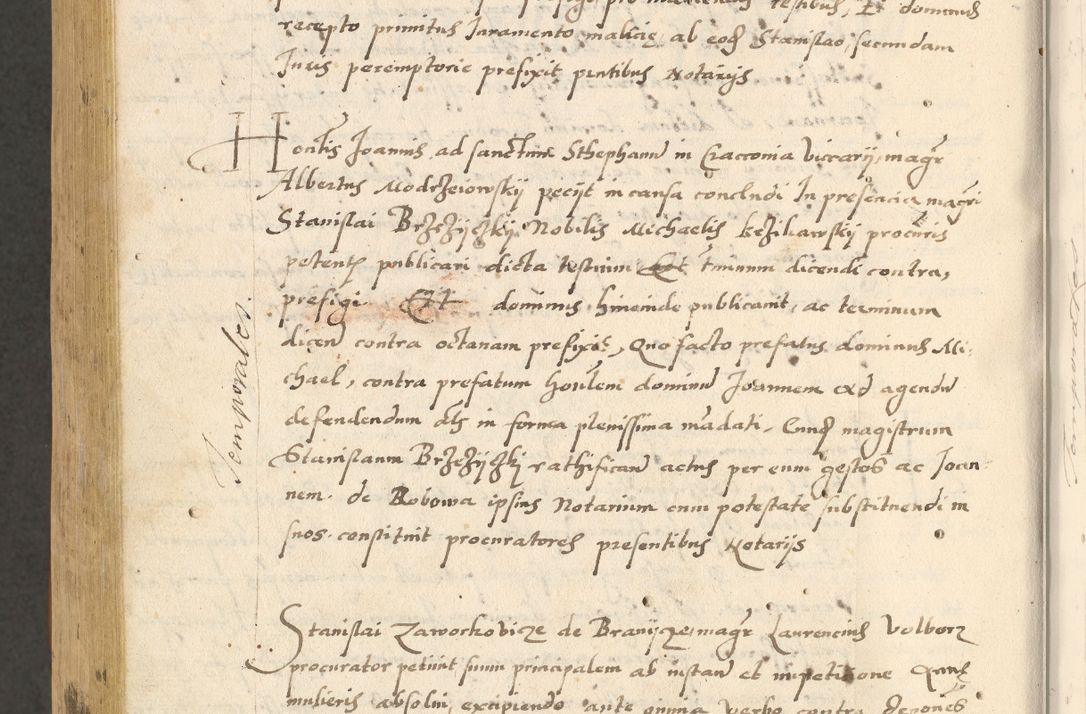 recepto primitus Juramento malicię ab eodę Stanislao, secundam
Juris peremptorie prefixit pntibus Notarijs
Honlis Joannis ad sanctum Sthephanū in Cracconia Viccarij, magr
Albertus Modrzeiowskij pecijt in causa concludi In presencia magri
Stanislai Brzezijczkij Nobilis Michaelis keziliawskij procuris
petentę publicari dicta testium Et tminum dicendi contra,
prefigi. Et dominus hincinde publicauit, ac terminum
dicen contra octauam prefixit, Quo facto prefatus dominus Mi-
chael, contra prefatum honlem dominū Joannem ad agendū
defendendum etc in forma plenissima mādati, Eundę magistrum
Stanislaum Brzezijczkj rathificanď actus per eum gestos ac Joan-
nem de Bobowa ipsius Notarium cum potestate substituendi in
suos constituit procuratores presentibus Notarijs
Temporales.
Stanislai Zawockovicze de Branijcze, magr Laurencius Volborz
procurator petiuit suum principalem ab instanť et impeticione
mulieris absolui, excipiendo ante omnia verbo contra